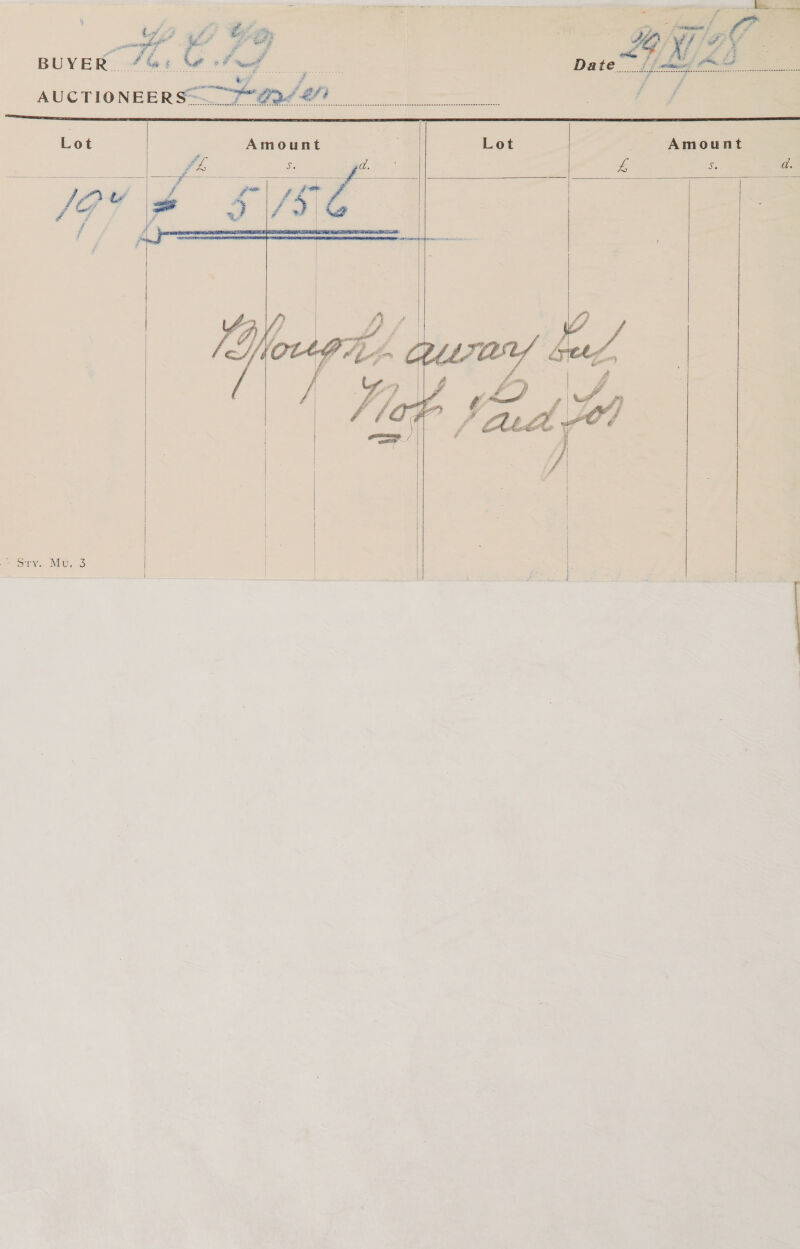 BUYER H. C. B. Date 29/XI/28
AUCTIONEERS Foster
Lot Amount Lot Amount
£ s. d. £ s. d.
194 £ 5 15 6
Brought away but
Not Paid for
Sty. Mu. 3